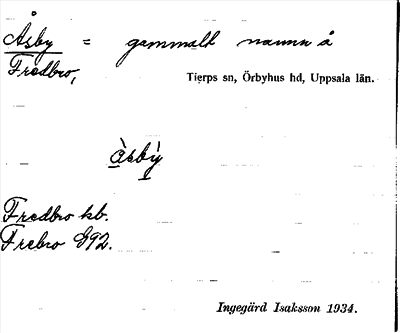 Åsby = gammalt namn å
Fredbro, Tierps sn, Örbyhus hd, Uppsala län.
àsbỳ
Fredbro kb.
Frebro 892.
Ingegärd Isaksson 1934.